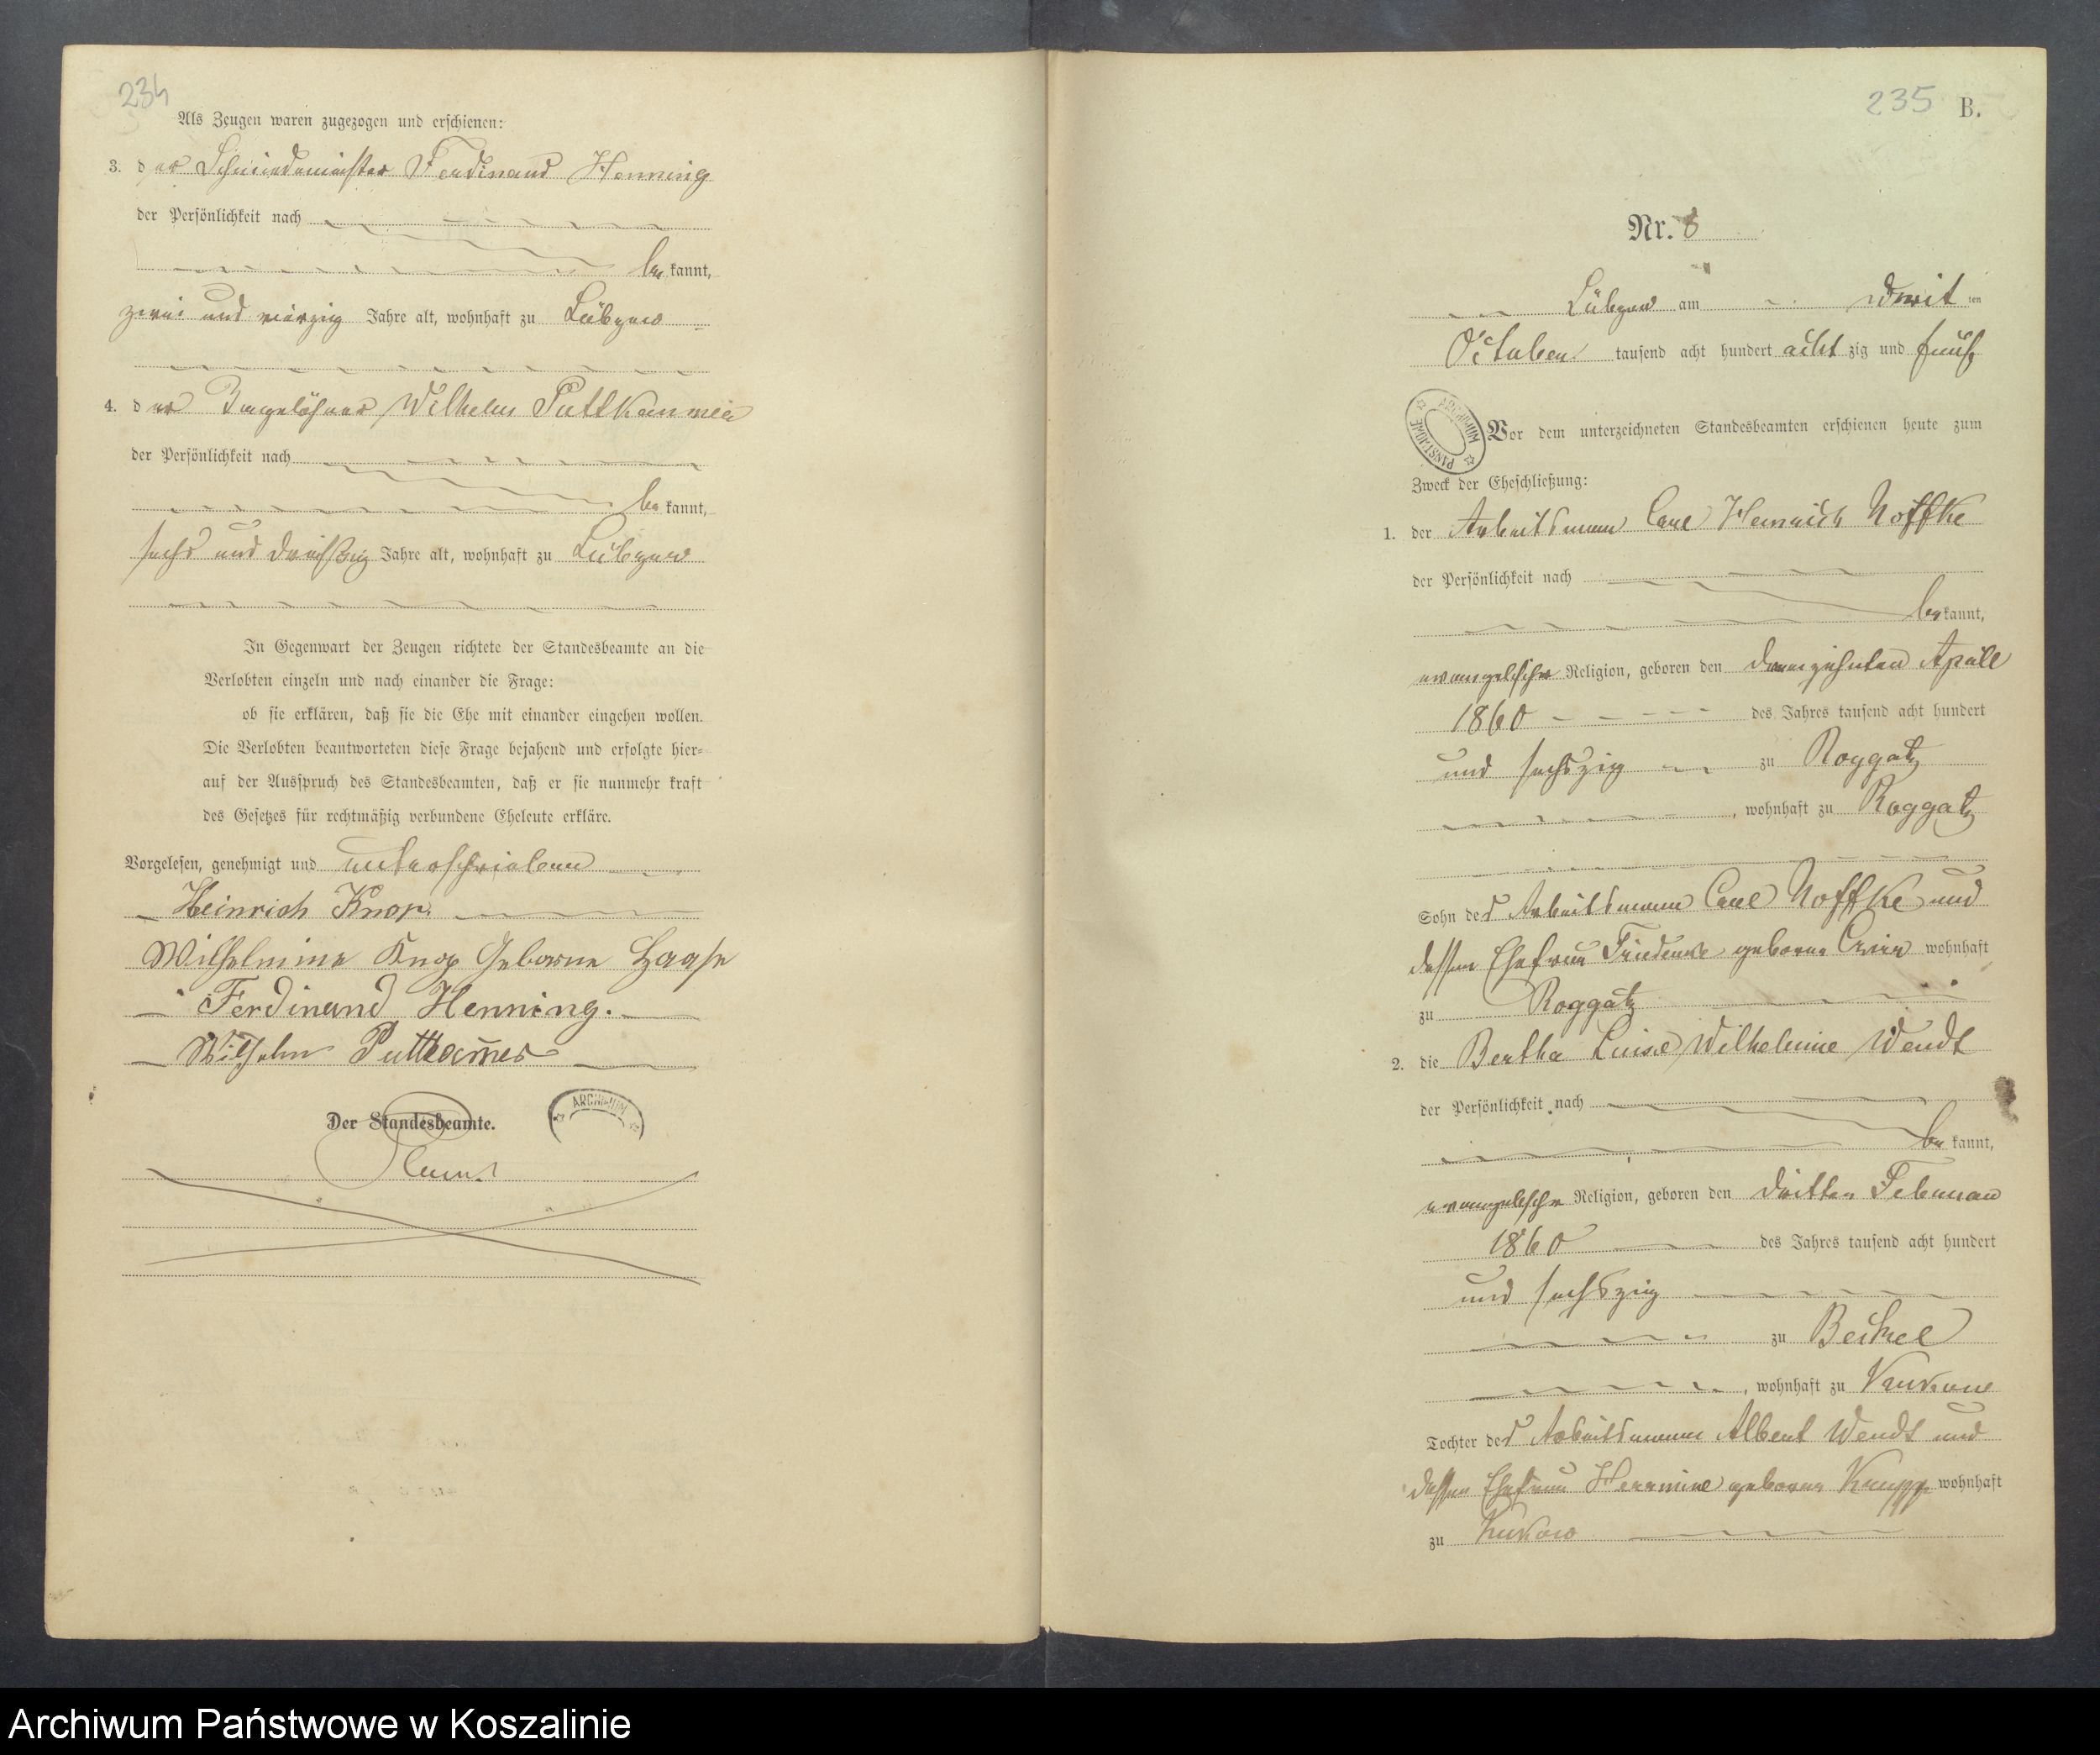 234
Als Zeugen waren zugezogen und erschienen:
3. der Schmiedemeister Ferdinand Henning
der Persönlichkeit nach
be kannt,
zwei und vierzig Jahre alt, wohnhaft zu Lübzow
4. der Wilhelm Puttkammer
der Persönlichkeit nach
be kannt,
sechs und dreißig Jahre alt, wohnhaft zu Lübzow
In Gegenwart der Zeugen richtete der Standesbeamte an die
Verlobten einzeln und nach einander die Frage:
ob sie erklären, daß sie die Ehe mit einander eingehen wollen.
Die Verlobten beantworteten diese Frage bejahend und erfolgte hier-
auf der Ausspruch des Standesbeamten, daß er sie nunmehr kraft
des Gesetzes für rechtmäßig verbundene Eheleute erkläre.
Vorgelesen, genehmigt und unterschrieben
Heinrich Knop
Wilhelmine Knop Geborne Haase
Ferdinand Henning.
Wilhelm Puttkamer
Der Standesbeamte.
ARCHIWUM
235 B.
Nr. 8
Lübzow am ten
October tausend acht hundert acht zig und fünf
ARCHIWUM PAŃSTWOWE
Vor dem unterzeichneten Standesbeamten erschienen heute zum
Zweck der Eheschließung:
1. der Arbeitsmann Carl Heinrich Noffke
der Persönlichkeit nach
be kannt,
evangelischer Religion, geboren den April
1860 des Jahres tausend acht hundert
und sechszig zu Roggatz
, wohnhaft zu Roggatz
Sohn des Arbeitsmann Carl Noffke und
dessen Ehefrau geborne wohnhaft
zu Roggatz
2. die Bertha Luise Wilhelmine Wendt
der Persönlichkeit nach
be kannt,
evangelischer Religion, geboren den dritten Februar
1860 des Jahres tausend acht hundert
und sechszig
zu
, wohnhaft zu
Tochter des Arbeitsmann Albert Wendt und
dessen Ehefrau Hermine geborne wohnhaft
zu
Archiwum Państwowe w Koszalinie